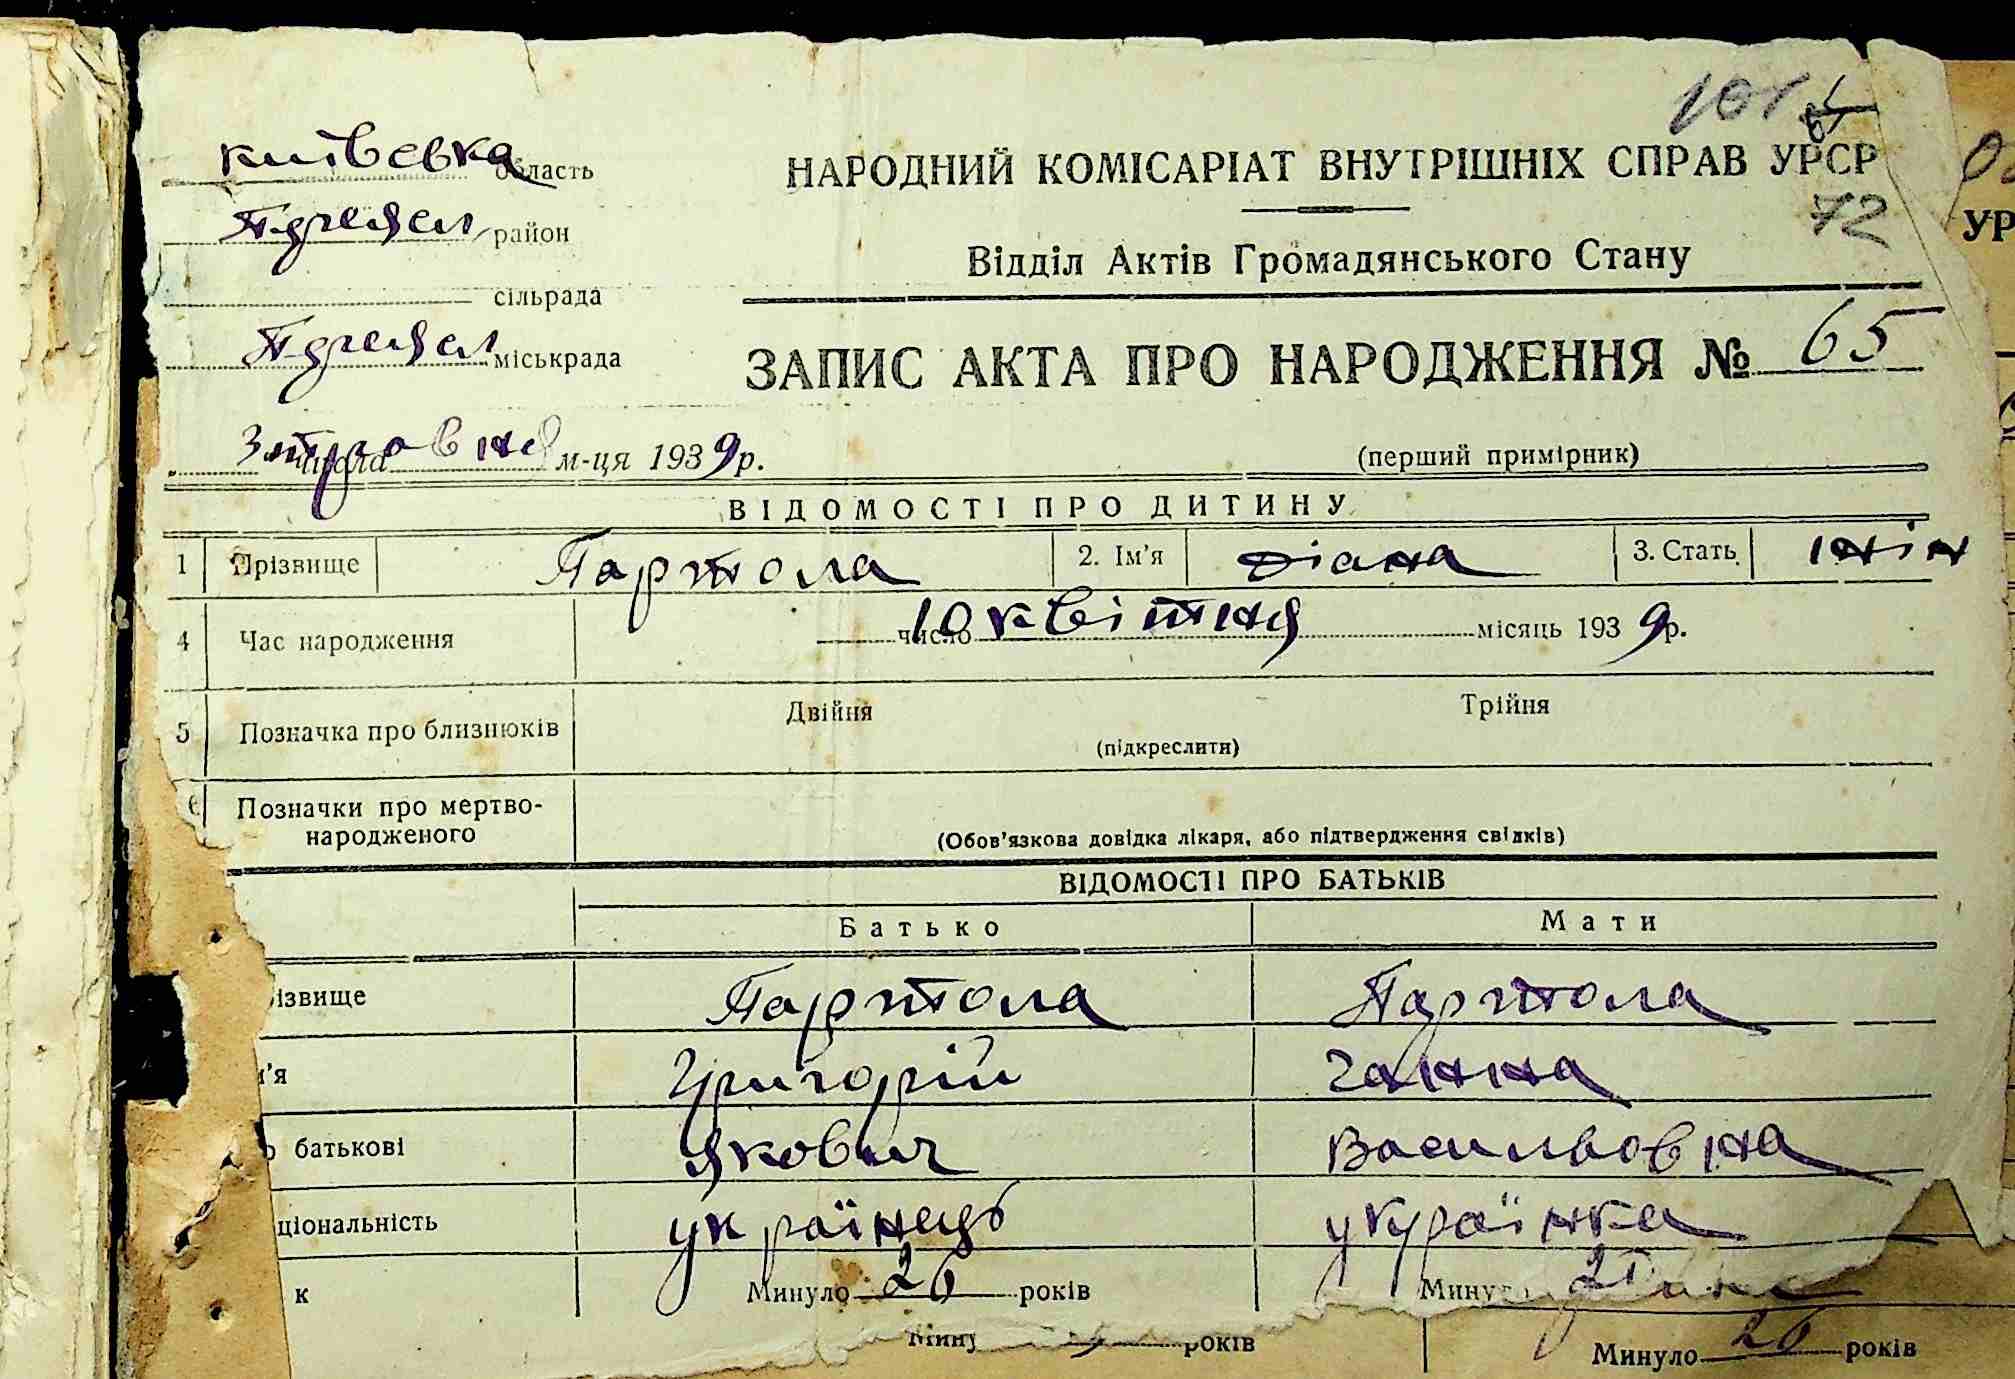 101
київська область
район
72
сільрада
міськрада
3 травня числа м-ця 1939 р.
НАРОДНИЙ КОМІСАРІАТ ВНУТРІШНІХ СПРАВ УРСР
Відділ Актів Громадянського Стану
ЗАПИС АКТА ПРО НАРОДЖЕННЯ № 65
(перший примірник)
ВІДОМОСТІ ПРО ДИТИНУ
1 Прізвище Партола 2. Ім'я Діана 3. Стать жін
4 Час народження 10 число квітня місяць 1939 р.
5 Позначка про близнюків Двійня Трійня
(підкреслити)
6 Позначки про мертво-
народженого
(Обов'язкова довідка лікаря, або підтвердження свідків)
ВІДОМОСТІ ПРО БАТЬКІВ
Батько Мати
ізвище Партола Партола
'я Григорій Ганна
батькові Якович Васильовна
ціональність українець українка
к Минуло 26 років Мину
Мину років
Минуло 26 років
УР